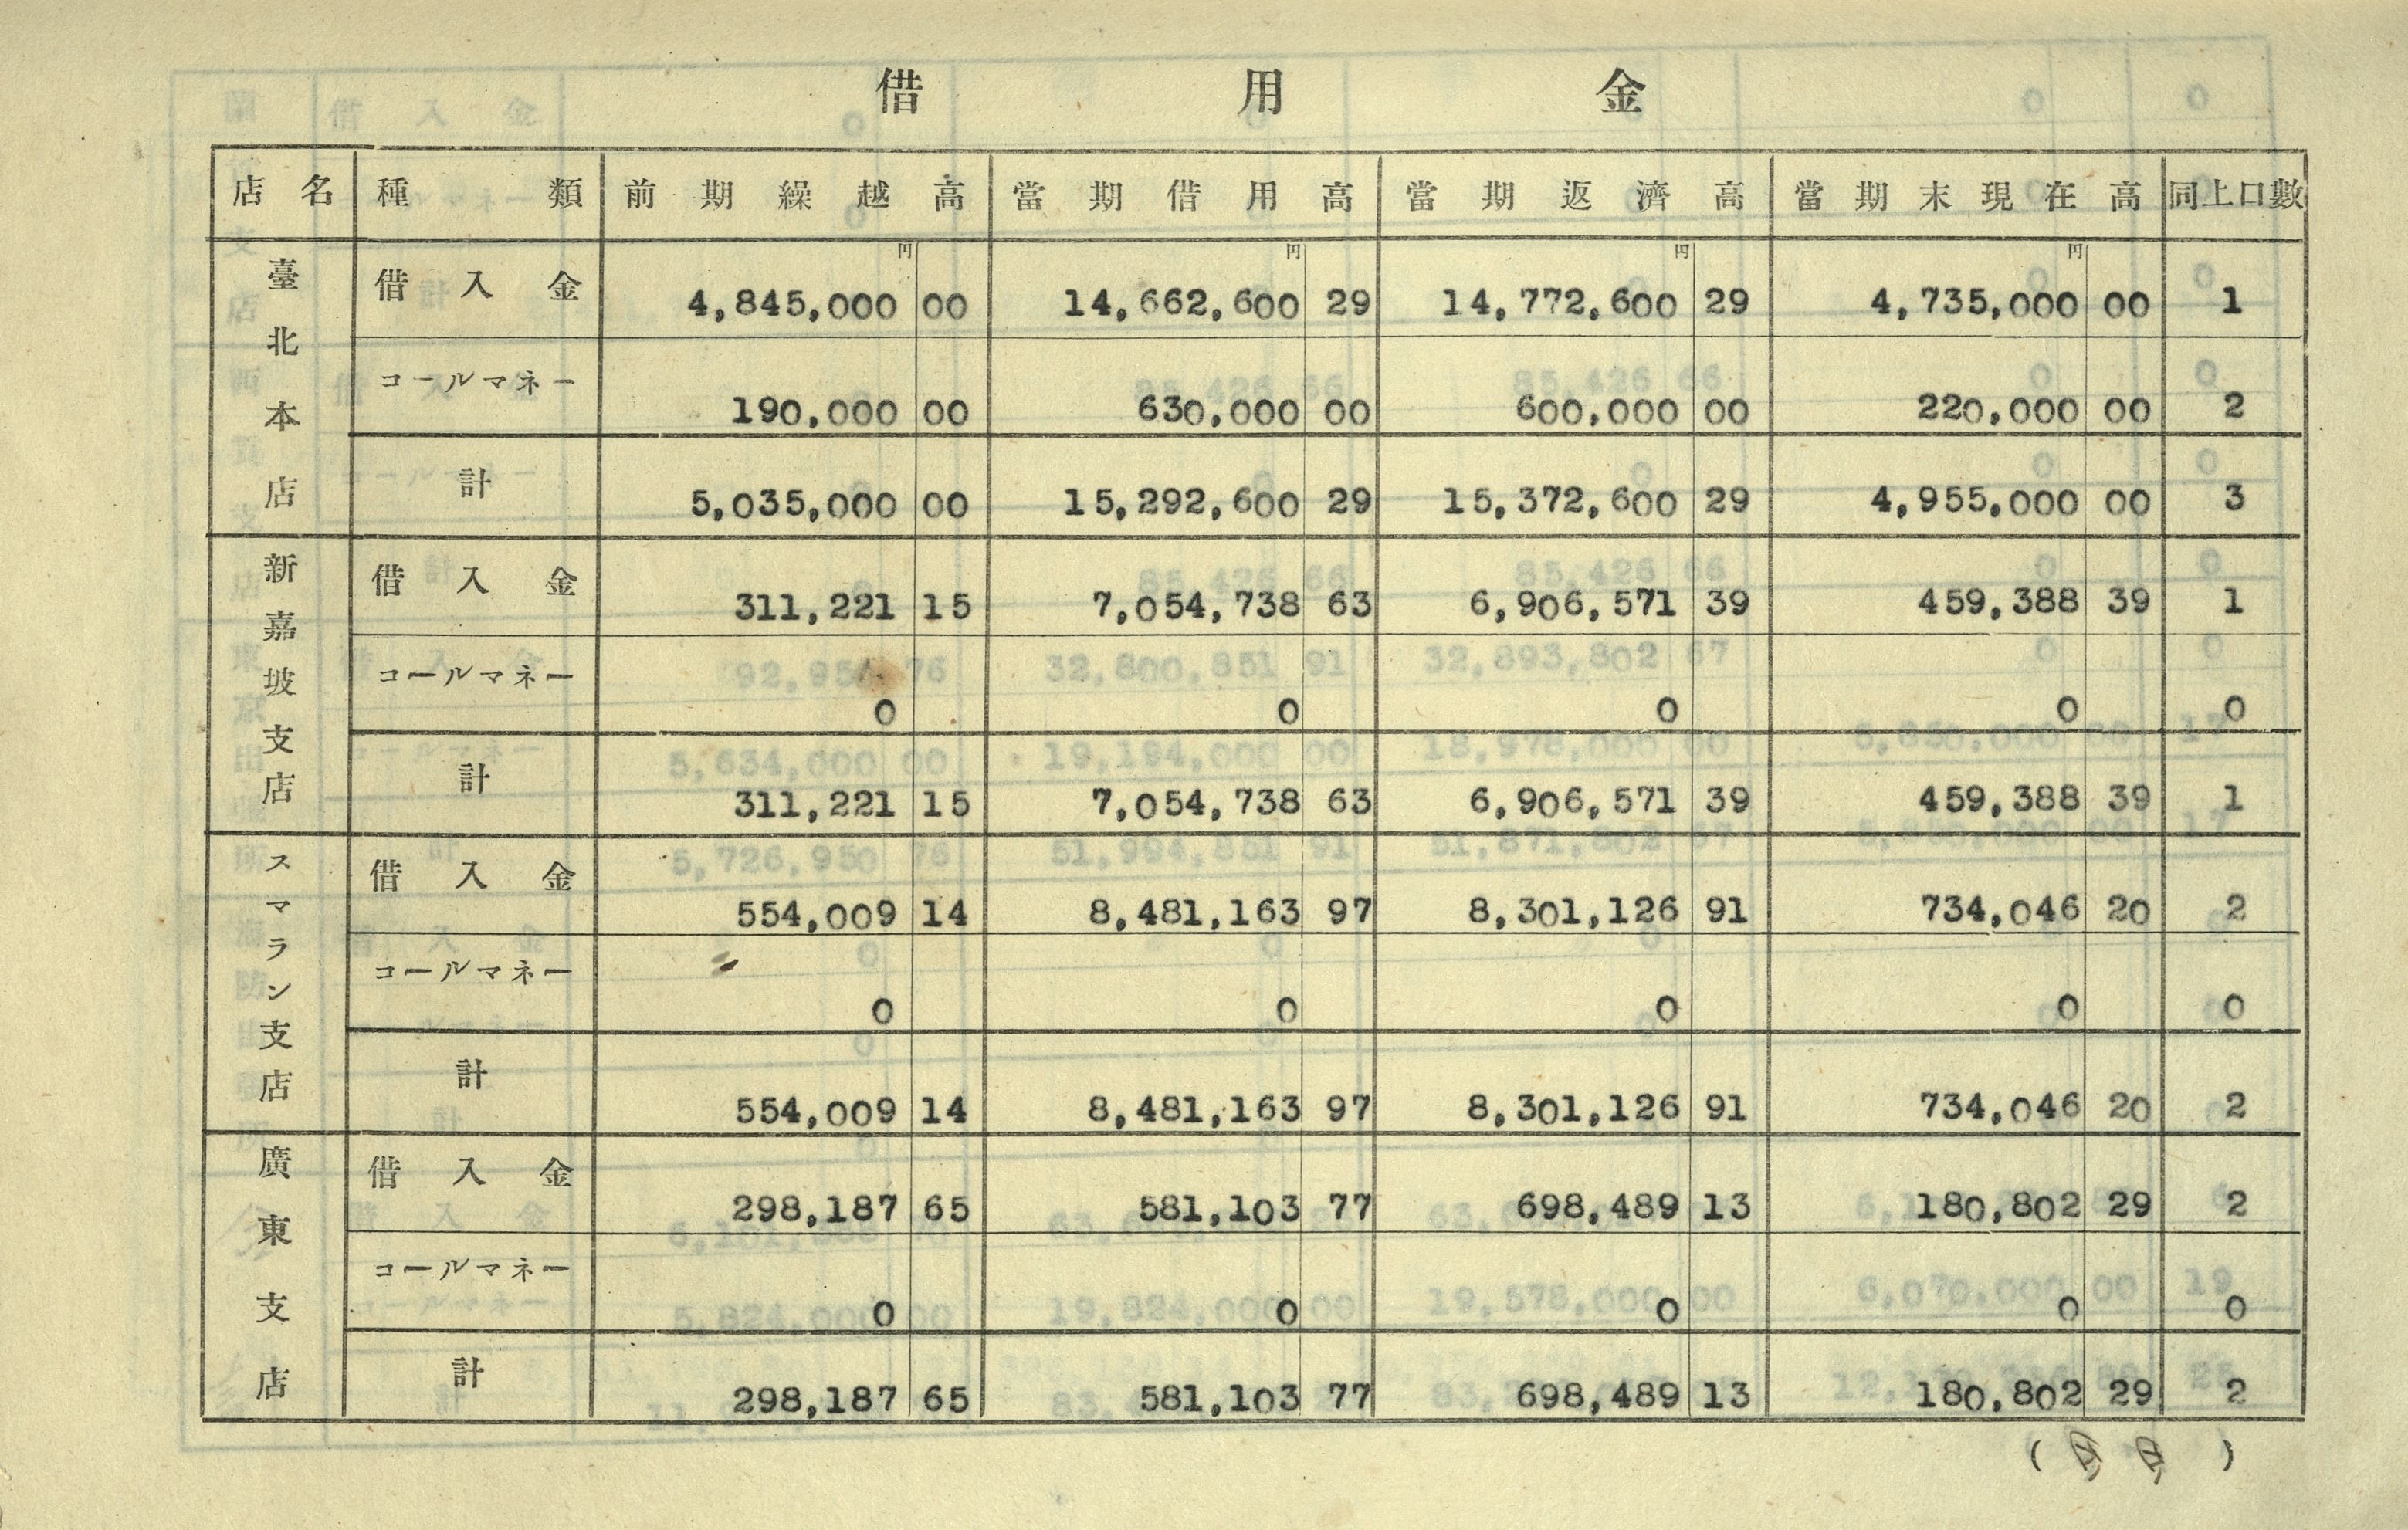 借用金
店名 種類 前期繰越高 當期借用高 當期返濟高 當期末現在高 同上口數
円 円 円 円
臺北本店 借入金 4,845,000 00 14,662,600 29 14,772,600 29 4,735,000 00 1
コールマネー 190,000 00 630,000 00 600,000 00 220,000 00 2
計 5,035,000 00 15,292,600 29 15,372,600 29 4,955,000 00 3
新嘉坡支店 借入金 311,221 15 7,054,738 63 6,906,571 39 459,388 39 1
コールマネー 0 0 0 0 0
計 311,221 15 7,054,738 63 6,906,571 39 459,388 39 1
スマラン支店 借入金 554,009 14 8,481,163 97 8,301,126 91 734,046 20 2
コールマネー 0 0 0 0 0
計 554,009 14 8,481,163 97 8,301,126 91 734,046 20 2
廣東支店 借入金 298,187 65 581,103 77 698,489 13 180,802 29 2
コールマネー 0 0 0 0 0
計 298,187 65 581,103 77 698,489 13 180,802 29 2